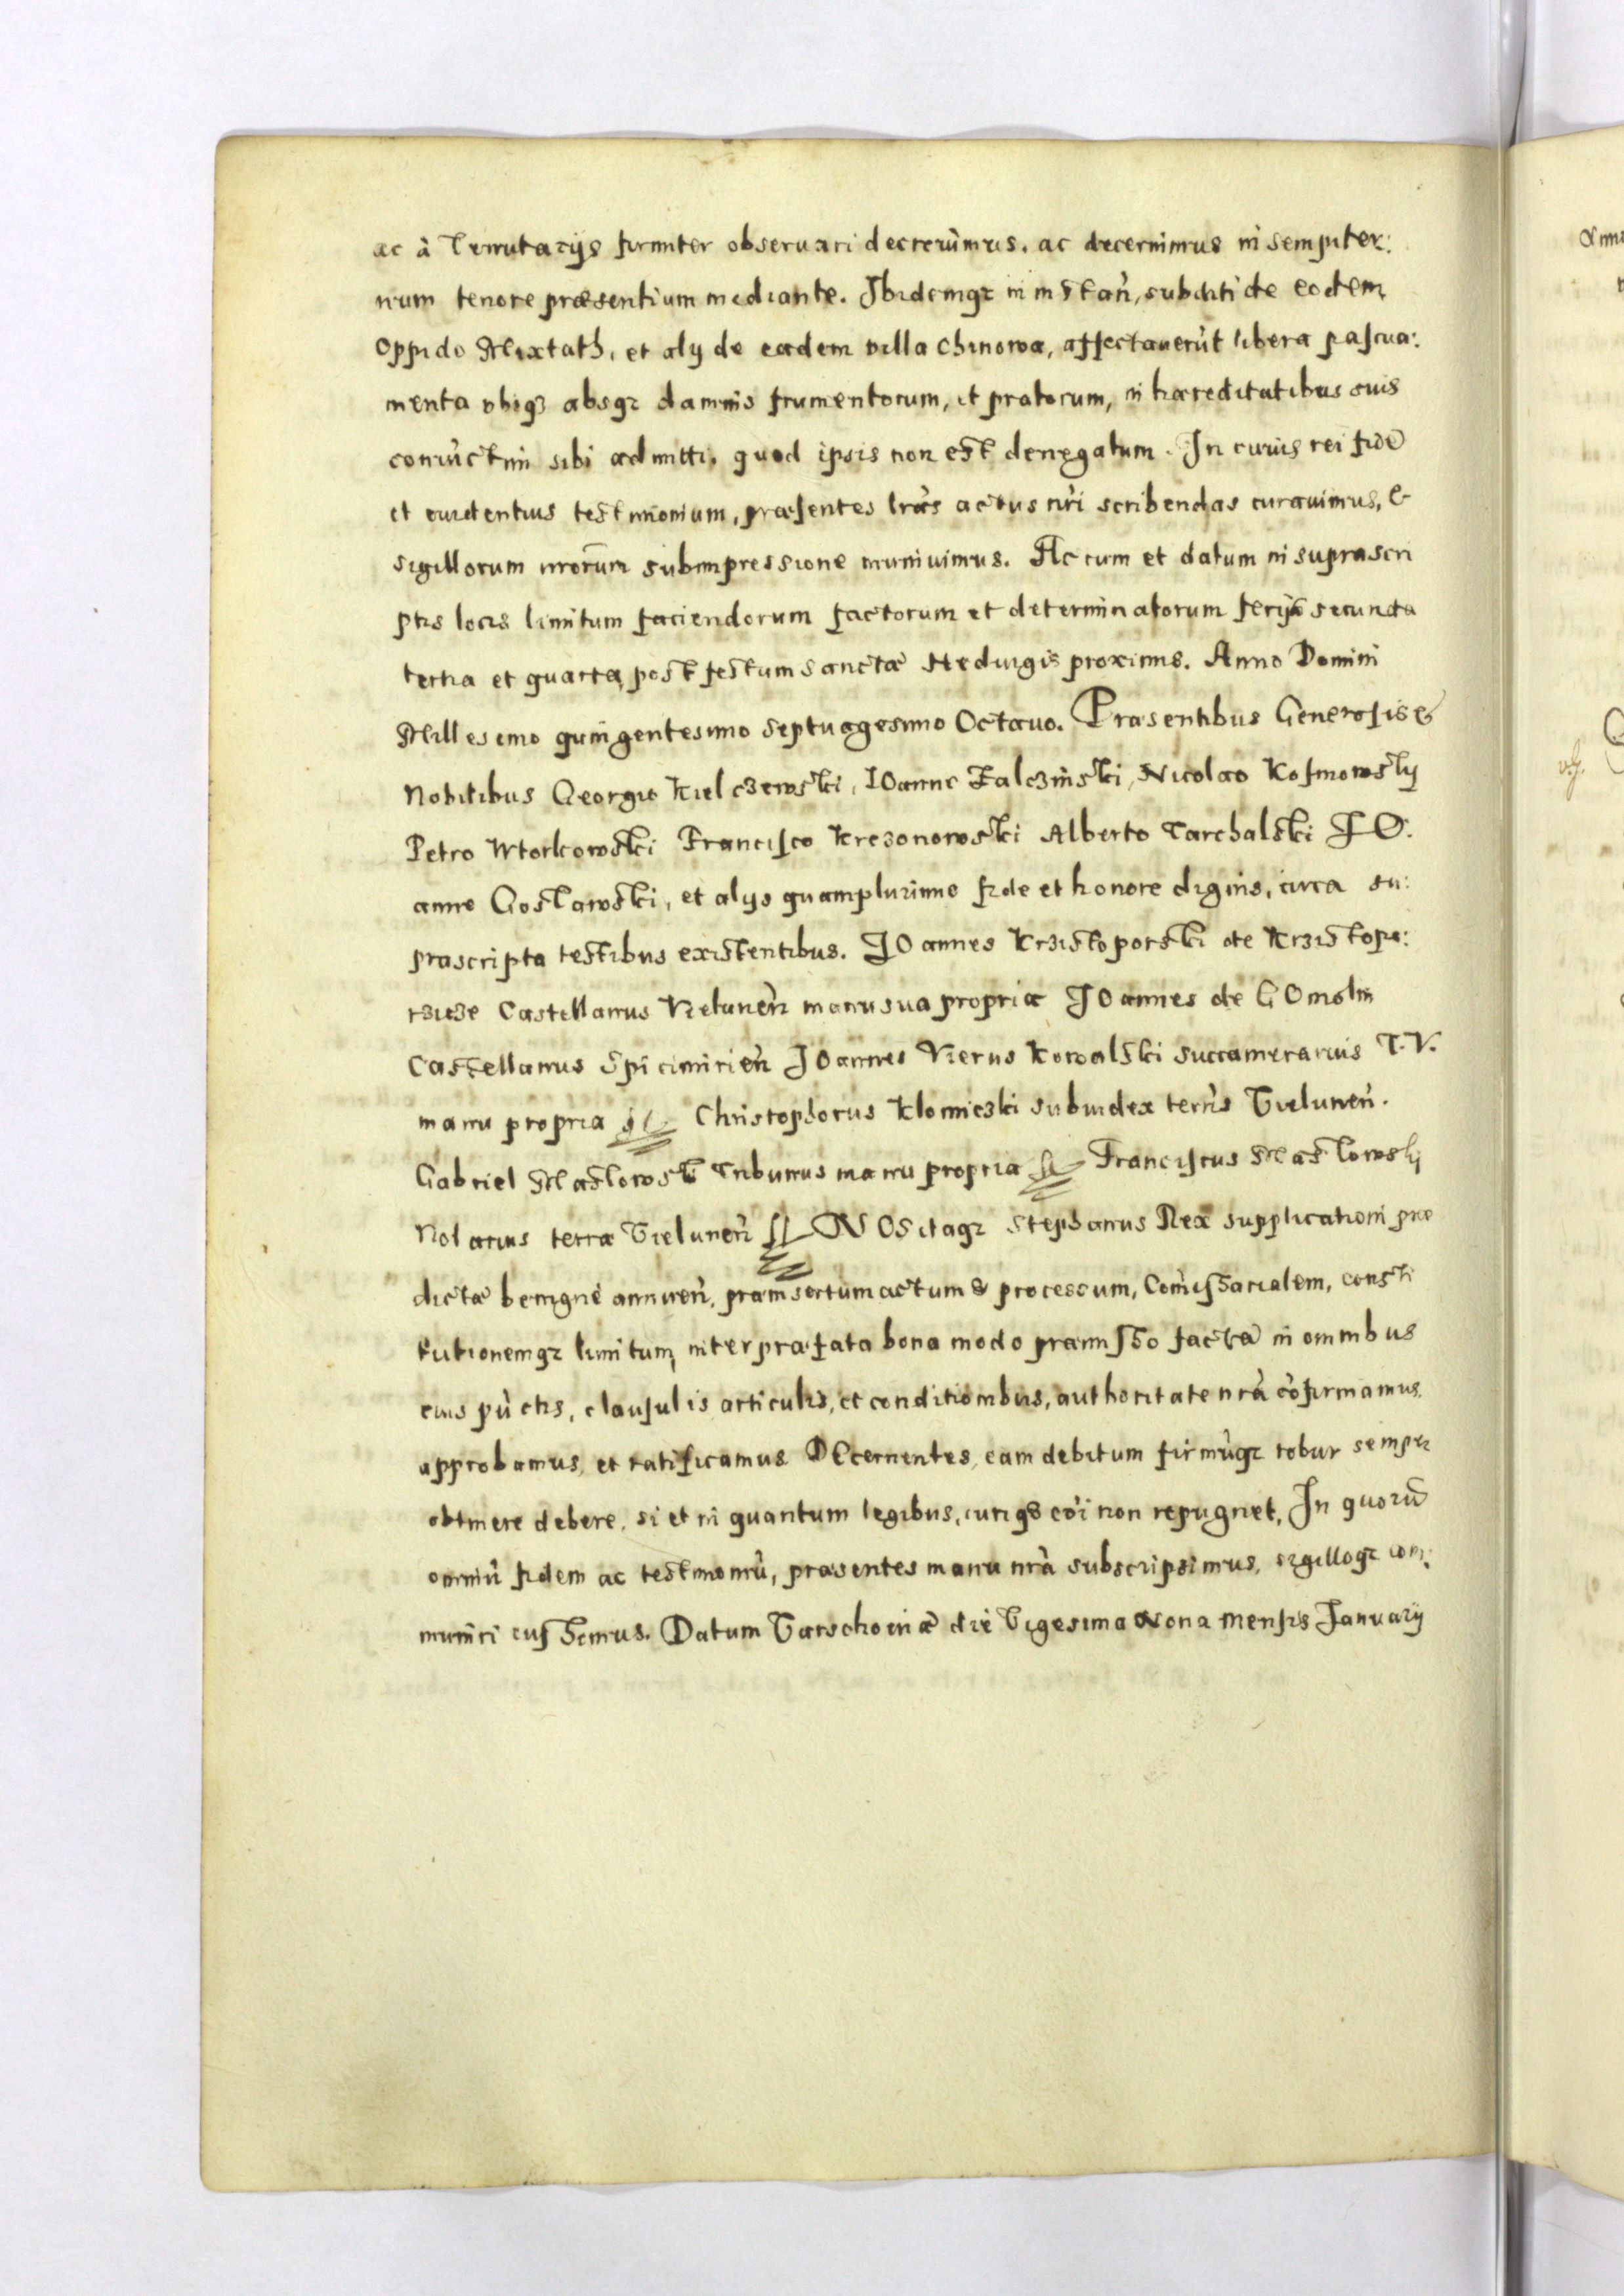 ac à Tenutarijs firmiter obseruari decreuimus. ac decernimus in sempiter:
num tenore præsentium mediante. Ibidemqz in instan̄, subditi de eodem
Oppido Mixtath, et alij de eadem villa Chinowa, affectauerūt libera pascua:
menta vbiqz absqz damnis frumentorum, et pratorum, in hæreditatibus suis
coniūctim sibi admitti, quod ipsis non est denegatum. In cuius rei fidē
et euidentius testimonium, præsentes lrās actus nr̄i scribendas curauimus, &
sigillorum nrorum̄ subimpressione muniuimus. Actum et datum in suprascri
ptis locis limitum faciendorum factorum et determinatorum ferijs secunda
tertia et quarta, post festum Sanctæ Heduigis proximis. Anno Domini
Millesimo quingentesimo septuagesimo Octauo. Præsentibus Generosis &
Nobilibus Georgio Kielczewski, IOanne Falczinski, Nicolao Kosmowskij
Petro Wtorkowski Francisco Krezonowski Alberto Tarchalski IO:
anne Goslawski, et alijs quamplurimis fide et honore dignis, circa su:
prascripta testibus existentibus. IOannes Krzistoporski de Krzistopo:
rzicze Castellanus Vielunen̄ manu sua propria IOannes de GOmolin
Castellanus Spicimirien̄ IOannes Vierus Kowalski Succamerarius T. V.
manu propria Christophorus Klomiczki Subiudex terris Vielunen̄.
Gabriel Maslowski Tribunus manu propria Franciscus Maslowskij
Notarius terræ Vielunen̄ NOS itaqz Stephanus Rex supplicationi præ
dictæ benignè annuen̄, præinsertum actum & processum, Com̄issarialem, consti
tutionemqz limitum, inter præfata bona modo præmisso factā in omnibus
eius pūctis, clausulis articulis, et conditionibus, authoritate nrā cōfirmamus
approbamus, et ratificamus DEcernentes, eam debitum firmūqz robur semper
obtinere debere, si et in quantum legibus, iuriqz cōi non repugnet, In quorū
omniū fidem ac testimoniū, præsentes manu nrā subscripsimus, sigilloqz com:
muniri iussimus. Datum Varschouiæ die Vigesima Nona Mensis Januarij